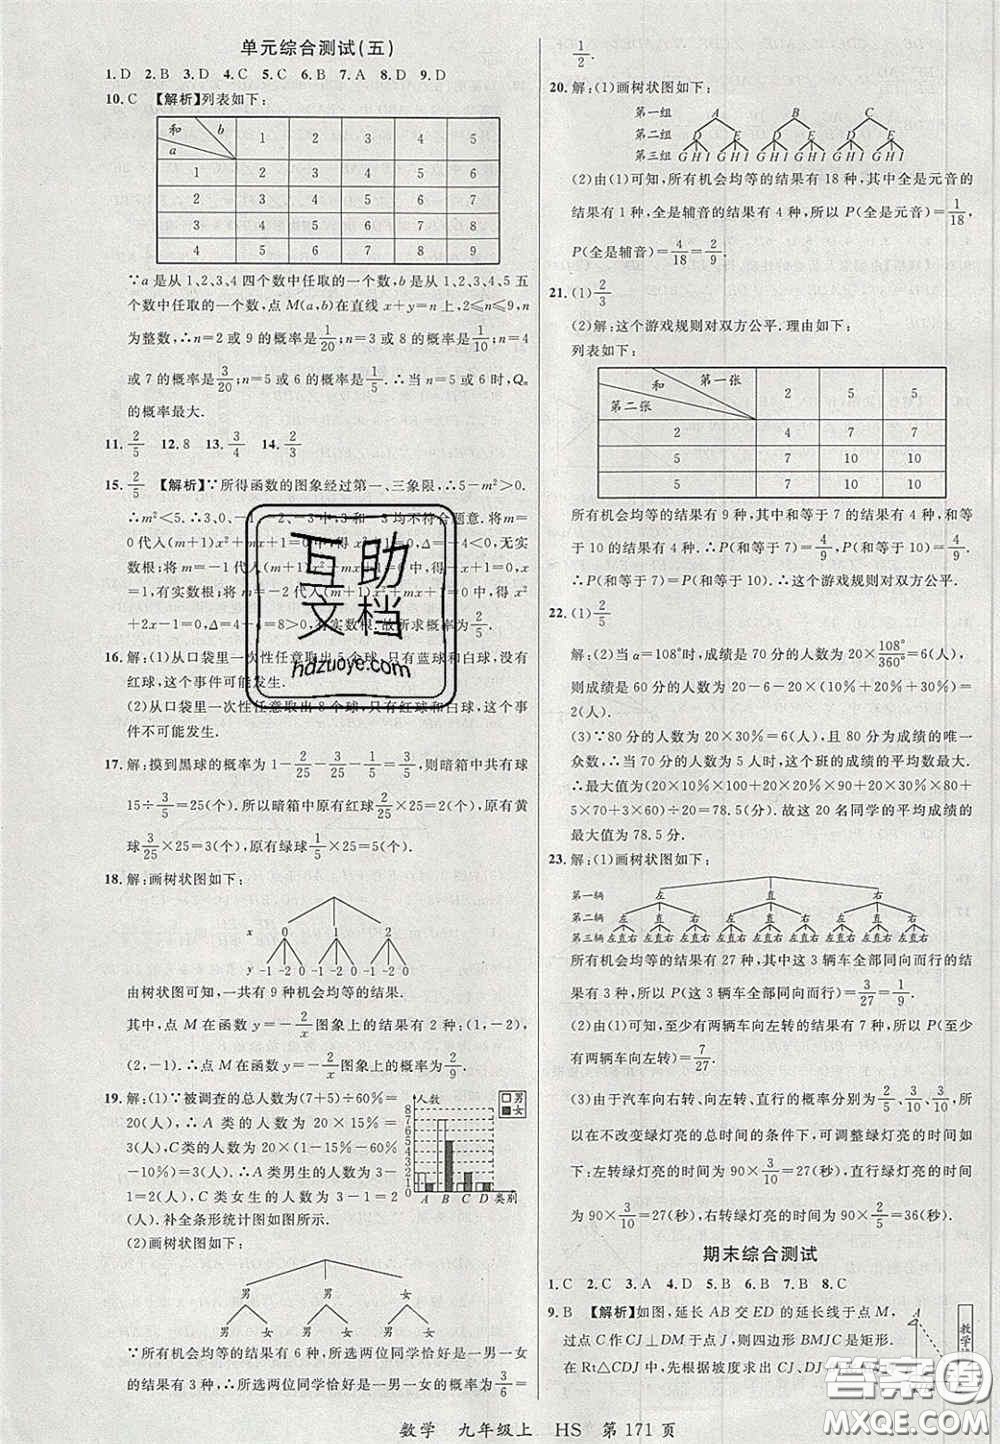 单元综合测试(五)
1.D 2.B 3.D 4.C 5.C 6.B 7.A 8.D 9.D
10.C 【解析】列表如下:
和 b 1 2 3 4 5
a
1 2 3 4 5 6
2 3 4 5 6 7
3 4 5 6 7 8
4 5 6 7 8 9
∵a是从1,2,3,4四个数中任取的一个数,b是从1,2,3,4,5五
个数中任取的一个数,点M(a,b)在直线x+y=n上,2≤n≤9,n
为整数,∴n=2或9的概率是1/20;n=3或8的概率是1/10;n=4
或7的概率是3/20;n=5或6的概率是1/5.∴当n=5或6时,Qn
的概率最大.
11.2/5 12.8 13.3/4 14.2/3
15.2/5 【解析】∵所得函数的图象经过第一、三象限,∴5-m²>0.
∴m²<5.∴3,0,-1,-2,-3中,3和-3均不符合题意.将m=
0代入(m+1)x²+mx+1=0中,得x²+1=0,Δ=-4<0,无实
数根;将m=-1代入(m+1)x²+mx+1=0中,得-x+1=0,
x=1,有实数根;将m=-2代入(m+1)x²+mx+1=0中,得x²
+2x-1=0,Δ=4+4=8>0,有实数根.故所求概率为2/5.
16.解:(1)从口袋里一次性任意取出5个球,只有蓝球和白球,没有
红球,这个事件可能发生.
(2)从口袋里一次性任意取出8个球,只有红球和白球,这个事
件不可能发生.
17.解:摸到黑球的概率为1-2/25-3/25-1/5=3/5,则暗箱中共有球
15÷3/5=25(个).所以暗箱中原有红球2/25×25=2(个),原有黄
球3/25×25=3(个),原有绿球1/5×25=5(个).
18.解:画树状图如下:
x 0 1 2
y -1 -2 0 -1 -2 0 -1 -2 0
由树状图可知,一共有9种机会均等的结果.
其中,点M在函数y=-2/x图象上的结果有2种:(1,-2),
(2,-1).∴点M在函数y=-2/x图象上的概率为2/9.
19.解:(1)∵被调查的总人数为(7+5)÷60%=
20(人),∴A类的人数为20×15%=
3(人),C类的人数为20×(1-15%-60%
-10%)=3(人).∴A类男生的人数为3-
1=2(人),C类女生的人数为3-1=2
(人).补全条形统计图如图所示.
人数 男 女
8 7 6 5 4 3 2 1
A B C D 类别
(2)画树状图如下:
男 男 女
男 女 男 女 男 女
∵所有机会均等的结果有6种,所选两位同学恰好是一男一女
的结果有3种,∴所选两位同学恰好是一男一女的概率为3/6=
1/2.
20.解:(1)画树状图如下:
第一组 A B C
第二组 D E D E D E
第三组 G H I G H I G H I G H I G H I G H I
(2)由(1)可知,所有机会均等的结果有18种,其中全是元音的
结果有1种,全是辅音的结果有4种,所以P(全是元音)=1/18,
P(全是辅音)=4/18=2/9.
21.(1)2/3
(2)解:这个游戏规则对双方公平.理由如下:
列表如下:
和 第一张 2 5 5
第二张
2 4 7 7
5 7 10 10
5 7 10 10
所有机会均等的结果有9种,其中和等于7的结果有4种,和等
于10的结果有4种.∴P(和等于7)=4/9,P(和等于10)=4/9.
∴P(和等于7)=P(和等于10).∴这个游戏规则对双方公平.
22.(1)2/5
解:(2)当α=108°时,成绩是70分的人数为20×108°/360°=6(人),
则成绩是60分的人数为20-6-20×(10%+20%+30%)=
2(人).
(3)∵80分的人数为20×30%=6(人),且80分为成绩的唯一
众数,∴当70分的人数为5人时,这个班的成绩的平均数最大.
∴最大值为(20×10%×100+20×20%×90+20×30%×80+
5×70+3×60)÷20=78.5(分).故这20名同学的平均成绩的
最大值为78.5分.
23.解:(1)画树状图如下:
第一辆 左 直 右
第二辆 左 直 右 左 直 右 左 直 右
第三辆 左直右 左直右 左直右 左直右 左直右 左直右 左直右 左直右 左直右
所有机会均等的结果有27种,其中这3辆车全部同向而行的结
果有3种,所以P(这3辆车全部同向而行)=3/27=1/9.
(2)由(1)可知,至少有两辆车向左转的结果有7种,所以P(至少
有两辆车向左转)=7/27.
(3)由于汽车向右转、向左转、直行的概率分别为2/5、3/10、3/10,所
以在不改变绿灯亮的总时间的条件下,可调整绿灯亮的时间如
下:左转绿灯亮的时间为90×3/10=27(秒),直行绿灯亮的时间
为90×3/10=27(秒),右转绿灯亮的时间为90×2/5=36(秒).
期末综合测试
1.C 2.C 3.A 4.D 5.B 6.B 7.B 8.C
9.B 【解析】如图,延长AB交ED的延长线于点M,
过点C作CJ⊥DM于点J,则四边形BMJC是矩形.
在Rt△CDJ中,先根据坡度求出CJ、DJ
A
教学
数学 九年级上 HS 第171页
互助文档
hdzuoye.com
答案圈
MXQE.COM